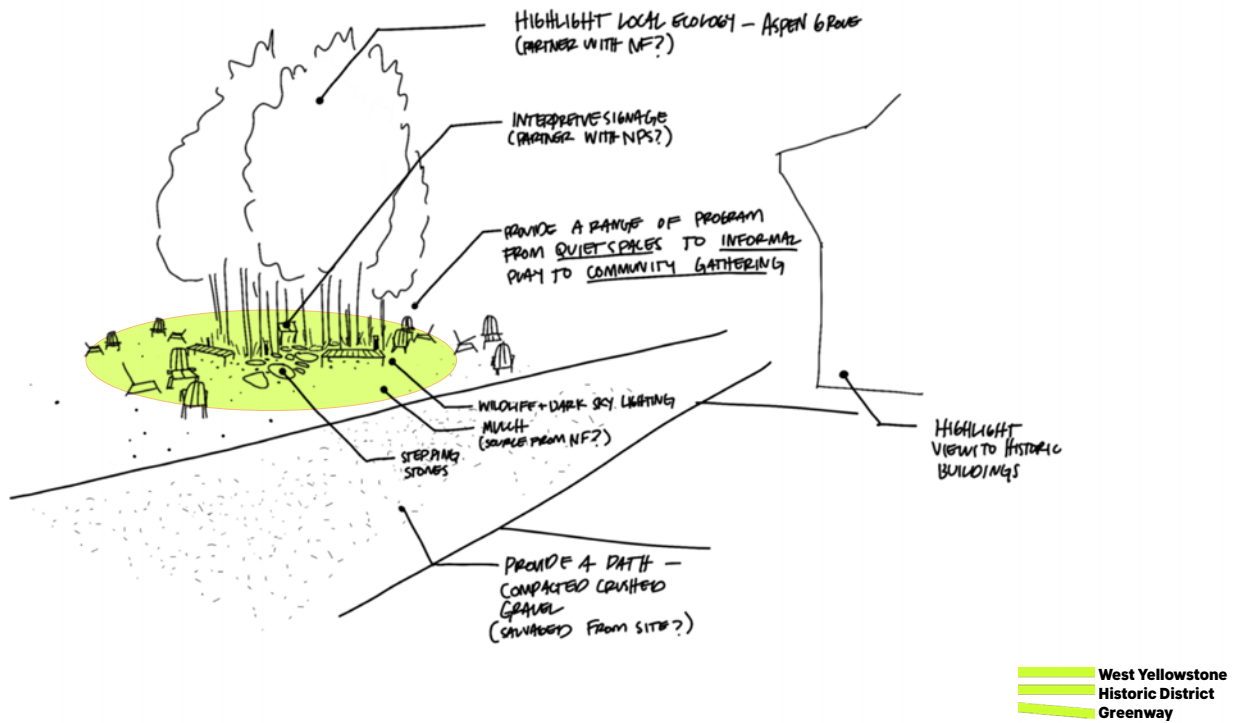 HIGHLIGHT LOCAL ECOLOGY — ASPEN GROVE
(PARTNER WITH NF?)
INTERPRETIVE SIGNAGE
(PARTNER WITH NPS?)
PROVIDE A RANGE OF PROGRAM
FROM QUIET SPACES TO INFORMAL
PLAY TO COMMUNITY GATHERING
WILDLIFE + DARK SKY LIGHTING
MULCH
(SOURCE FROM NF?)
STEPPING
STONES
HIGHLIGHT
VIEW TO HISTORIC
BUILDINGS
PROVIDE A PATH —
COMPACTED CRUSHED
GRAVEL
(SALVAGED FROM SITE?)
West Yellowstone
Historic District
Greenway